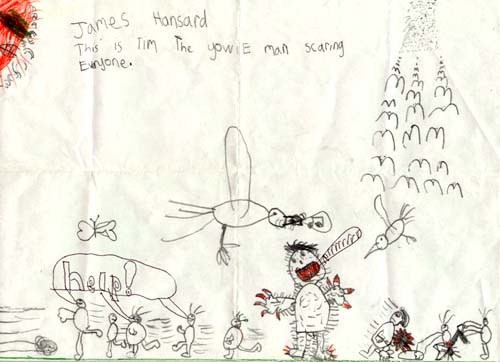 James Hansard
This is Tim The yowiE man scaring
Euryone.
help!
Arrrrrrr